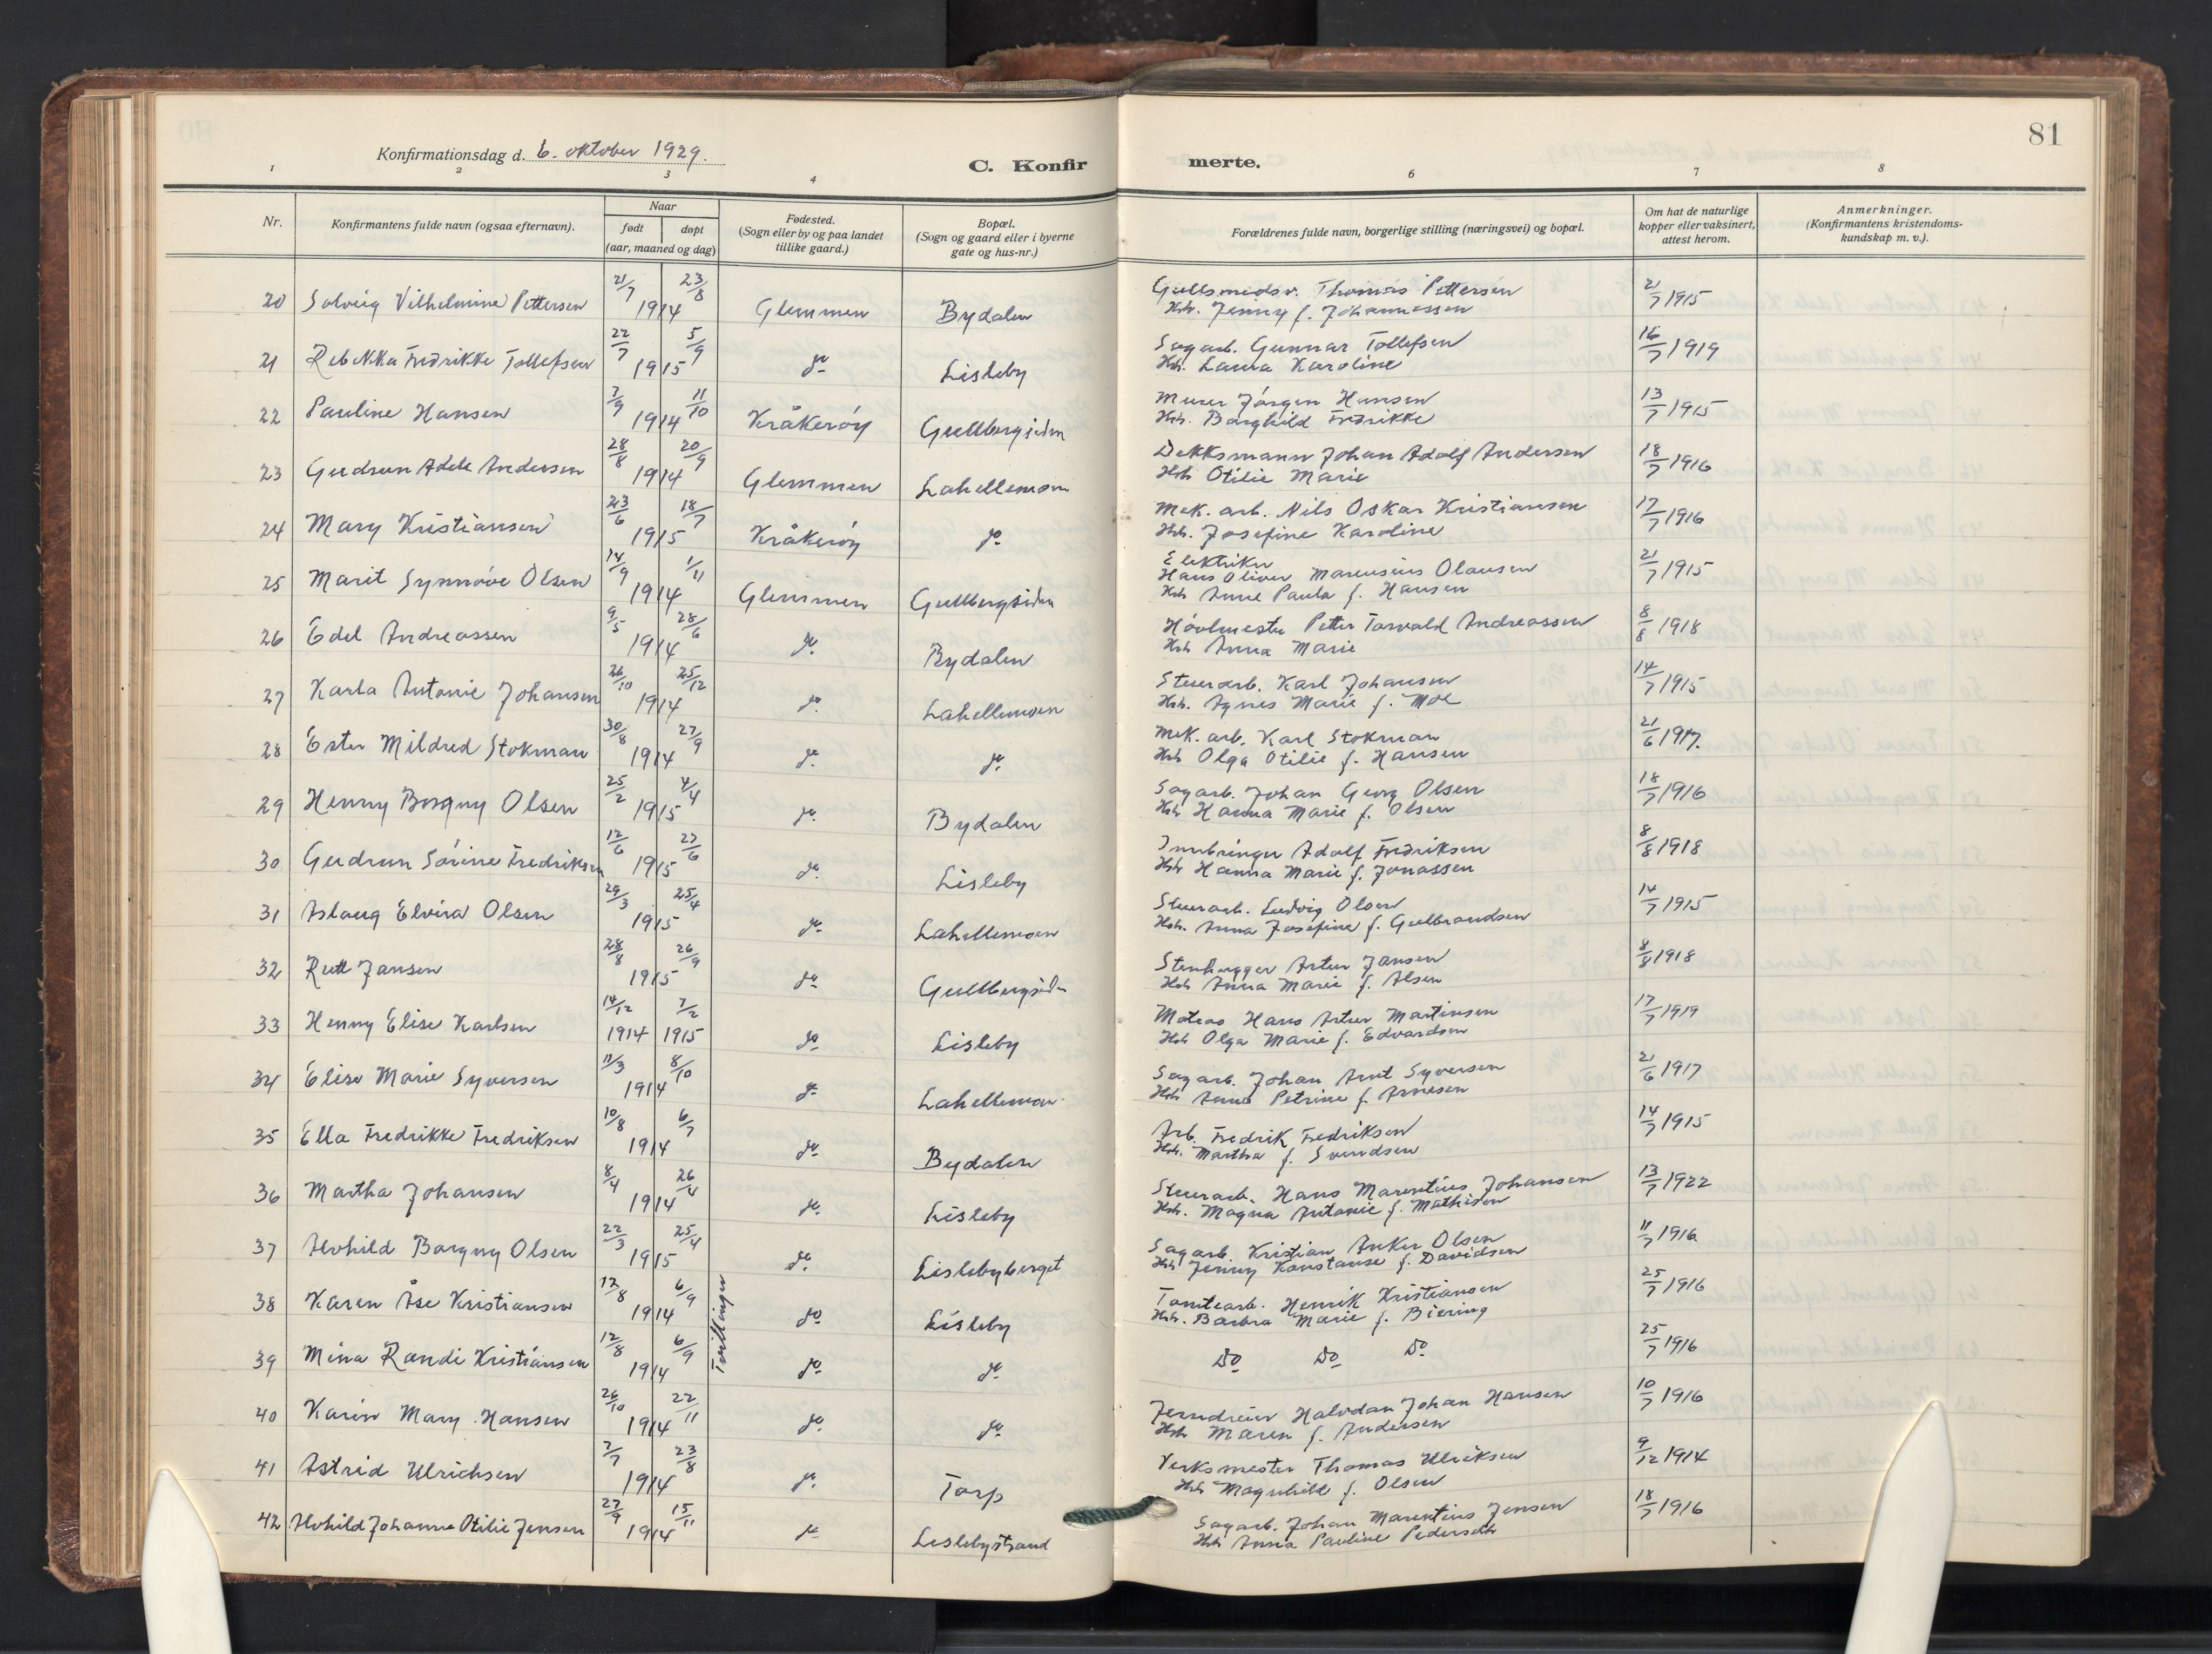 81
Konfirmationsdag d. 6. oktober 1929.
C. Konfirmerte.
1 2 3 4 6 7 8
Nr.
Konfirmantens fulde navn (ogsaa efternavn).
Naar
født
døpt
(aar, maaned og dag)
Fødested.
(Sogn eller by og paa landet
tillike gaard.)
Bopæl.
(Sogn og gaard eller i byerne
gate og hus-nr.)
Forældrenes fulde navn, borgerlige stilling (næringsvei) og bopæl.
Om hat de naturlige
kopper eller vaksinert,
attest herom.
Anmerkninger.
(Konfirmantens kristendoms-
kundskap m. v.).
20 Solveig Vilhelmine Pettersen 21/7 23/8 1914 Glemmen Bydalen Gullsmedsv. Thomas Pettersen 21/7 1915
Hstr. Jenny f. Johannessen
21 Rebekka Fredrikke Tollefsen 22/7 5/9 1915 do Lisleby Sagarb. Gunnar Tollefsen 16/7 1919
Hstr. Laura Karoline
22 Pauline Hansen 7/9 11/10 1914 Kråkerøy Gullbergsiden Murer Jørgen Hansen 13/7 1915
Hstr. Borghild Fredrikke
23 Gudrun Adele Andersen 28/8 20/9 1914 Glemmen Lahellemoen Dekksmann Johan Adolf Andersen 18/7 1916
Hstr Otilie Marie
24 Mary Kristiansen 23/6 18/7 1915 Kråkerøy do Mek. arb. Nils Oskar Kristiansen 17/7 1916
Hstr. Josefine Karoline
25 Marit Synnøve Olsen 14/9 1/11 1914 Glemmen Gullbergsiden Elektriker 21/7 1915
Hans Oliver Marensius Olausen
Hstr Anne Paula f. Hansen
26 Edel Andreassen 9/5 28/6 1914 do Bydalen Høvlmester Petter Torvald Andreassen 8/8 1918
Hstr Anna Marie
27 Karla Antonie Johansen 26/10 25/12 1914 do Lahellemoen Stuerarb. Karl Johansen 14/7 1915
Hstr. Agnes Marie f. Moe
28 Ester Mildred Stokman 30/8 27/9 1914 do do Mek. arb. Karl Stokman 21/6 1917.
Hstr Olga Otilie f. Hansen
29 Henny Borgny Olsen 25/2 4/4 1915 do Bydalen Sagarb. Johan Georg Olsen 18/7 1916
Hstr Hanna Marie f. Olsen
30 Gudrun Sørine Fredriksen 12/6 27/6 1915 do Lisleby Innbringer Adolf Fredriksen 8/8 1918
Hstr Hanna Marie f. Jonassen
31 Aslaug Elvira Olsen 29/3 25/4 1915 do Lahellemoen Stuerarb. Ludvig Olsen 14/7 1915
Hstr. Anna Josefine f. Gulbrandsen
32 Rutt Jansen 28/8 26/9 1915 do Gullbergsiden Stenhugger Artur Jansen 8/8 1918
Hstr Anna Marie f. Alsen
33 Henny Elise Karlsen 14/12 1914 7/2 1915 do Lisleby Matros Hans Artur Martinsen 17/7 1919
Hstr Olga Marie f. Edvardsen
34 Elise Marie Syversen 13/3 8/10 1914 do Lahellemoen Sagarb. Johan Arnt Syversen 21/6 1917
Hstr Anna Petrine f. Arnesen
35 Ella Fredrikke Fredriksen 10/8 6/7 1914 do Bydalen Arb. Fredrik Fredriksen 14/7 1915
Hstr. Martha f. Svendsen
36 Martha Johansen 8/4 26/4 1914 do Lisleby Stuerarb. Hans Marentius Johansen 13/7 1922
Hstr. Magna Antonie f. Mathisen
37 Alvhild Borgny Olsen 22/3 25/4 1915 do Lislebyberget Sagarb. Kristian Anker Olsen 11/7 1916
Hstr Jenny Konstanse f. Davidsen
Tvillinger
38 Karen Åse Kristiansen 12/8 6/9 1914 do Lisleby Tomtearb. Henrik Kristiansen 25/7 1916
Hstr. Barbra Marie f. Biering
39 Mina Randi Kristiansen 12/8 6/9 1914 do do Do Do Do 25/7 1916
40 Karin Mary Hansen 26/10 22/11 1914 do do Jerndreier Halvdan Johan Hansen 10/7 1916
Hstr Maren f. Andersen
41 Astrid Ulrichsen 7/7 23/8 1914 do Torp Verksmester Thomas Ulriksen 9/12 1914
Hstr Magnhild f. Olsen
42 Alvhild Johanne Otilie Jensen 27/9 15/11 1914 do Lislebystrand Sagarb. Johan Marentius Jensen 18/7 1916
Hstr Anna Pauline Pedersdtr